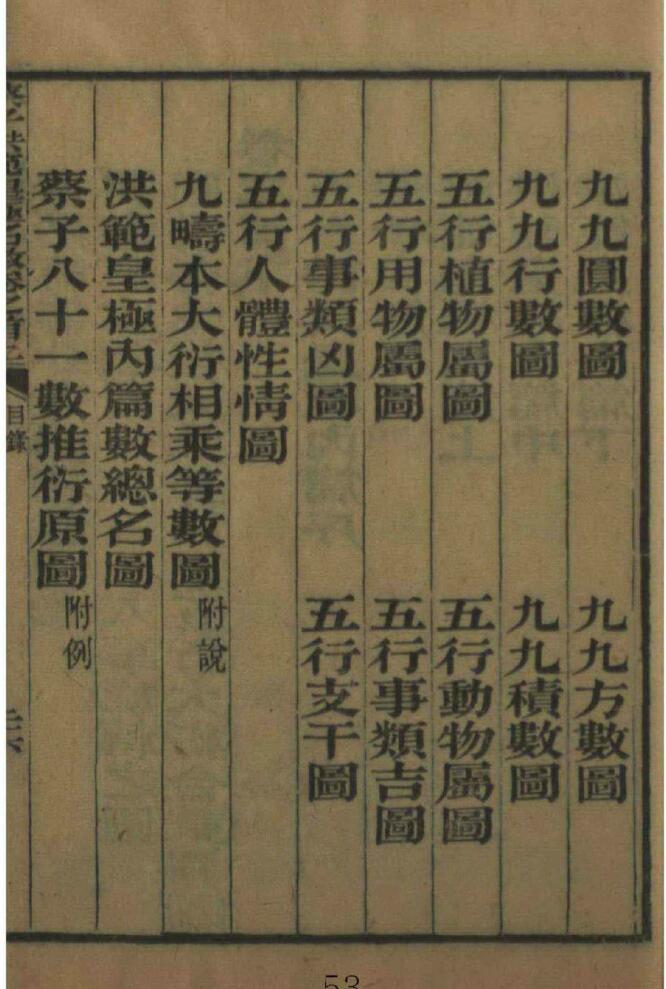 九九圓數圖 九九方數圖
九九行數圖 九九積數圖
五行植物屬圖 五行動物屬圖
五行用物屬圖 五行事類吉圖
五行事類凶圖 五行支干圖
五行人體性情圖
九疇本大衍相乘等數圖 附說
洪範皇極內篇數總名圖
蔡子八十一數推衍原圖 附例
目錄
53